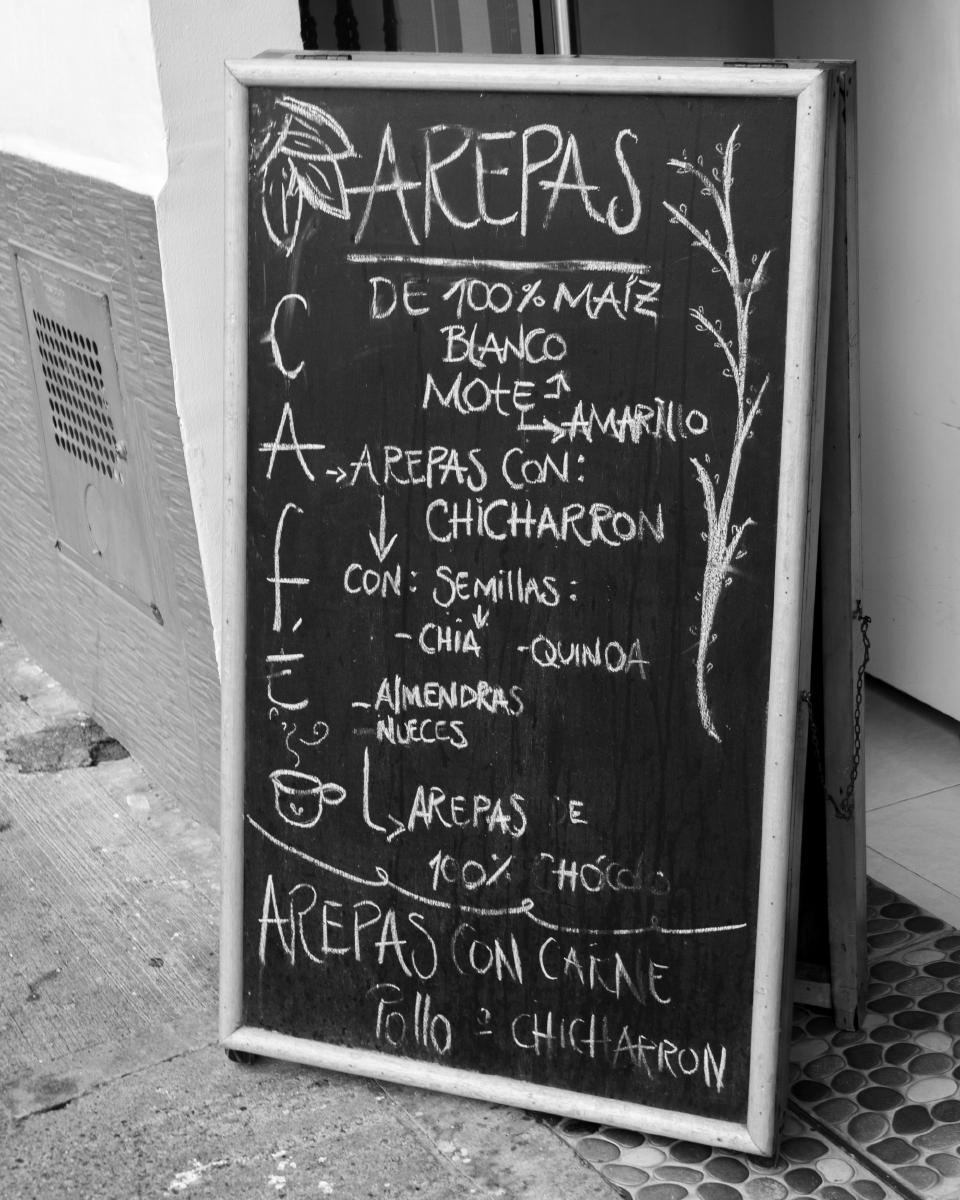 AREPAS
DE 100% MAÍZ
BLANCO
MOTE
AMARILLO
AREPAS CON:
CHICHARRON
CON: SEMILLAS:
- CHIA - QUINOA
- ALMENDRAS
- NUECES
AREPAS DE
100% CHÓCOLO
CAFÉ
AREPAS CON CARNE
Pollo o CHICHARRON